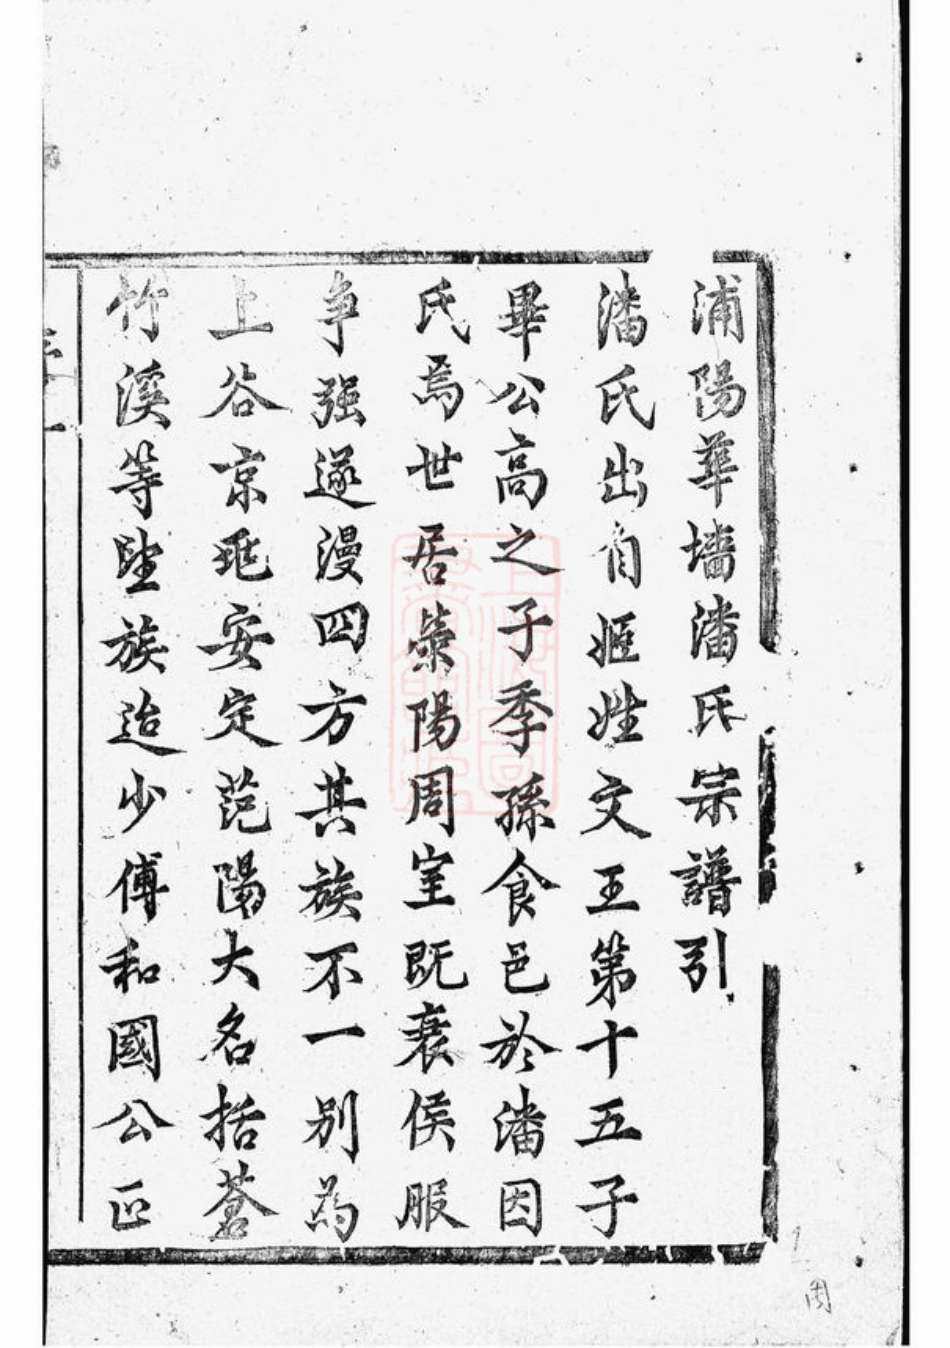 浦陽華墻潘氏宗譜引
潘氏出自姬姓文王第十五子
畢公高之子季孫食邑於潘因
氏焉世居滎陽周室既衰侯服
争强遂漫四方其族不一别為
上谷京兆安定范陽大名括蒼
竹溪等望族迨少傅和國公正